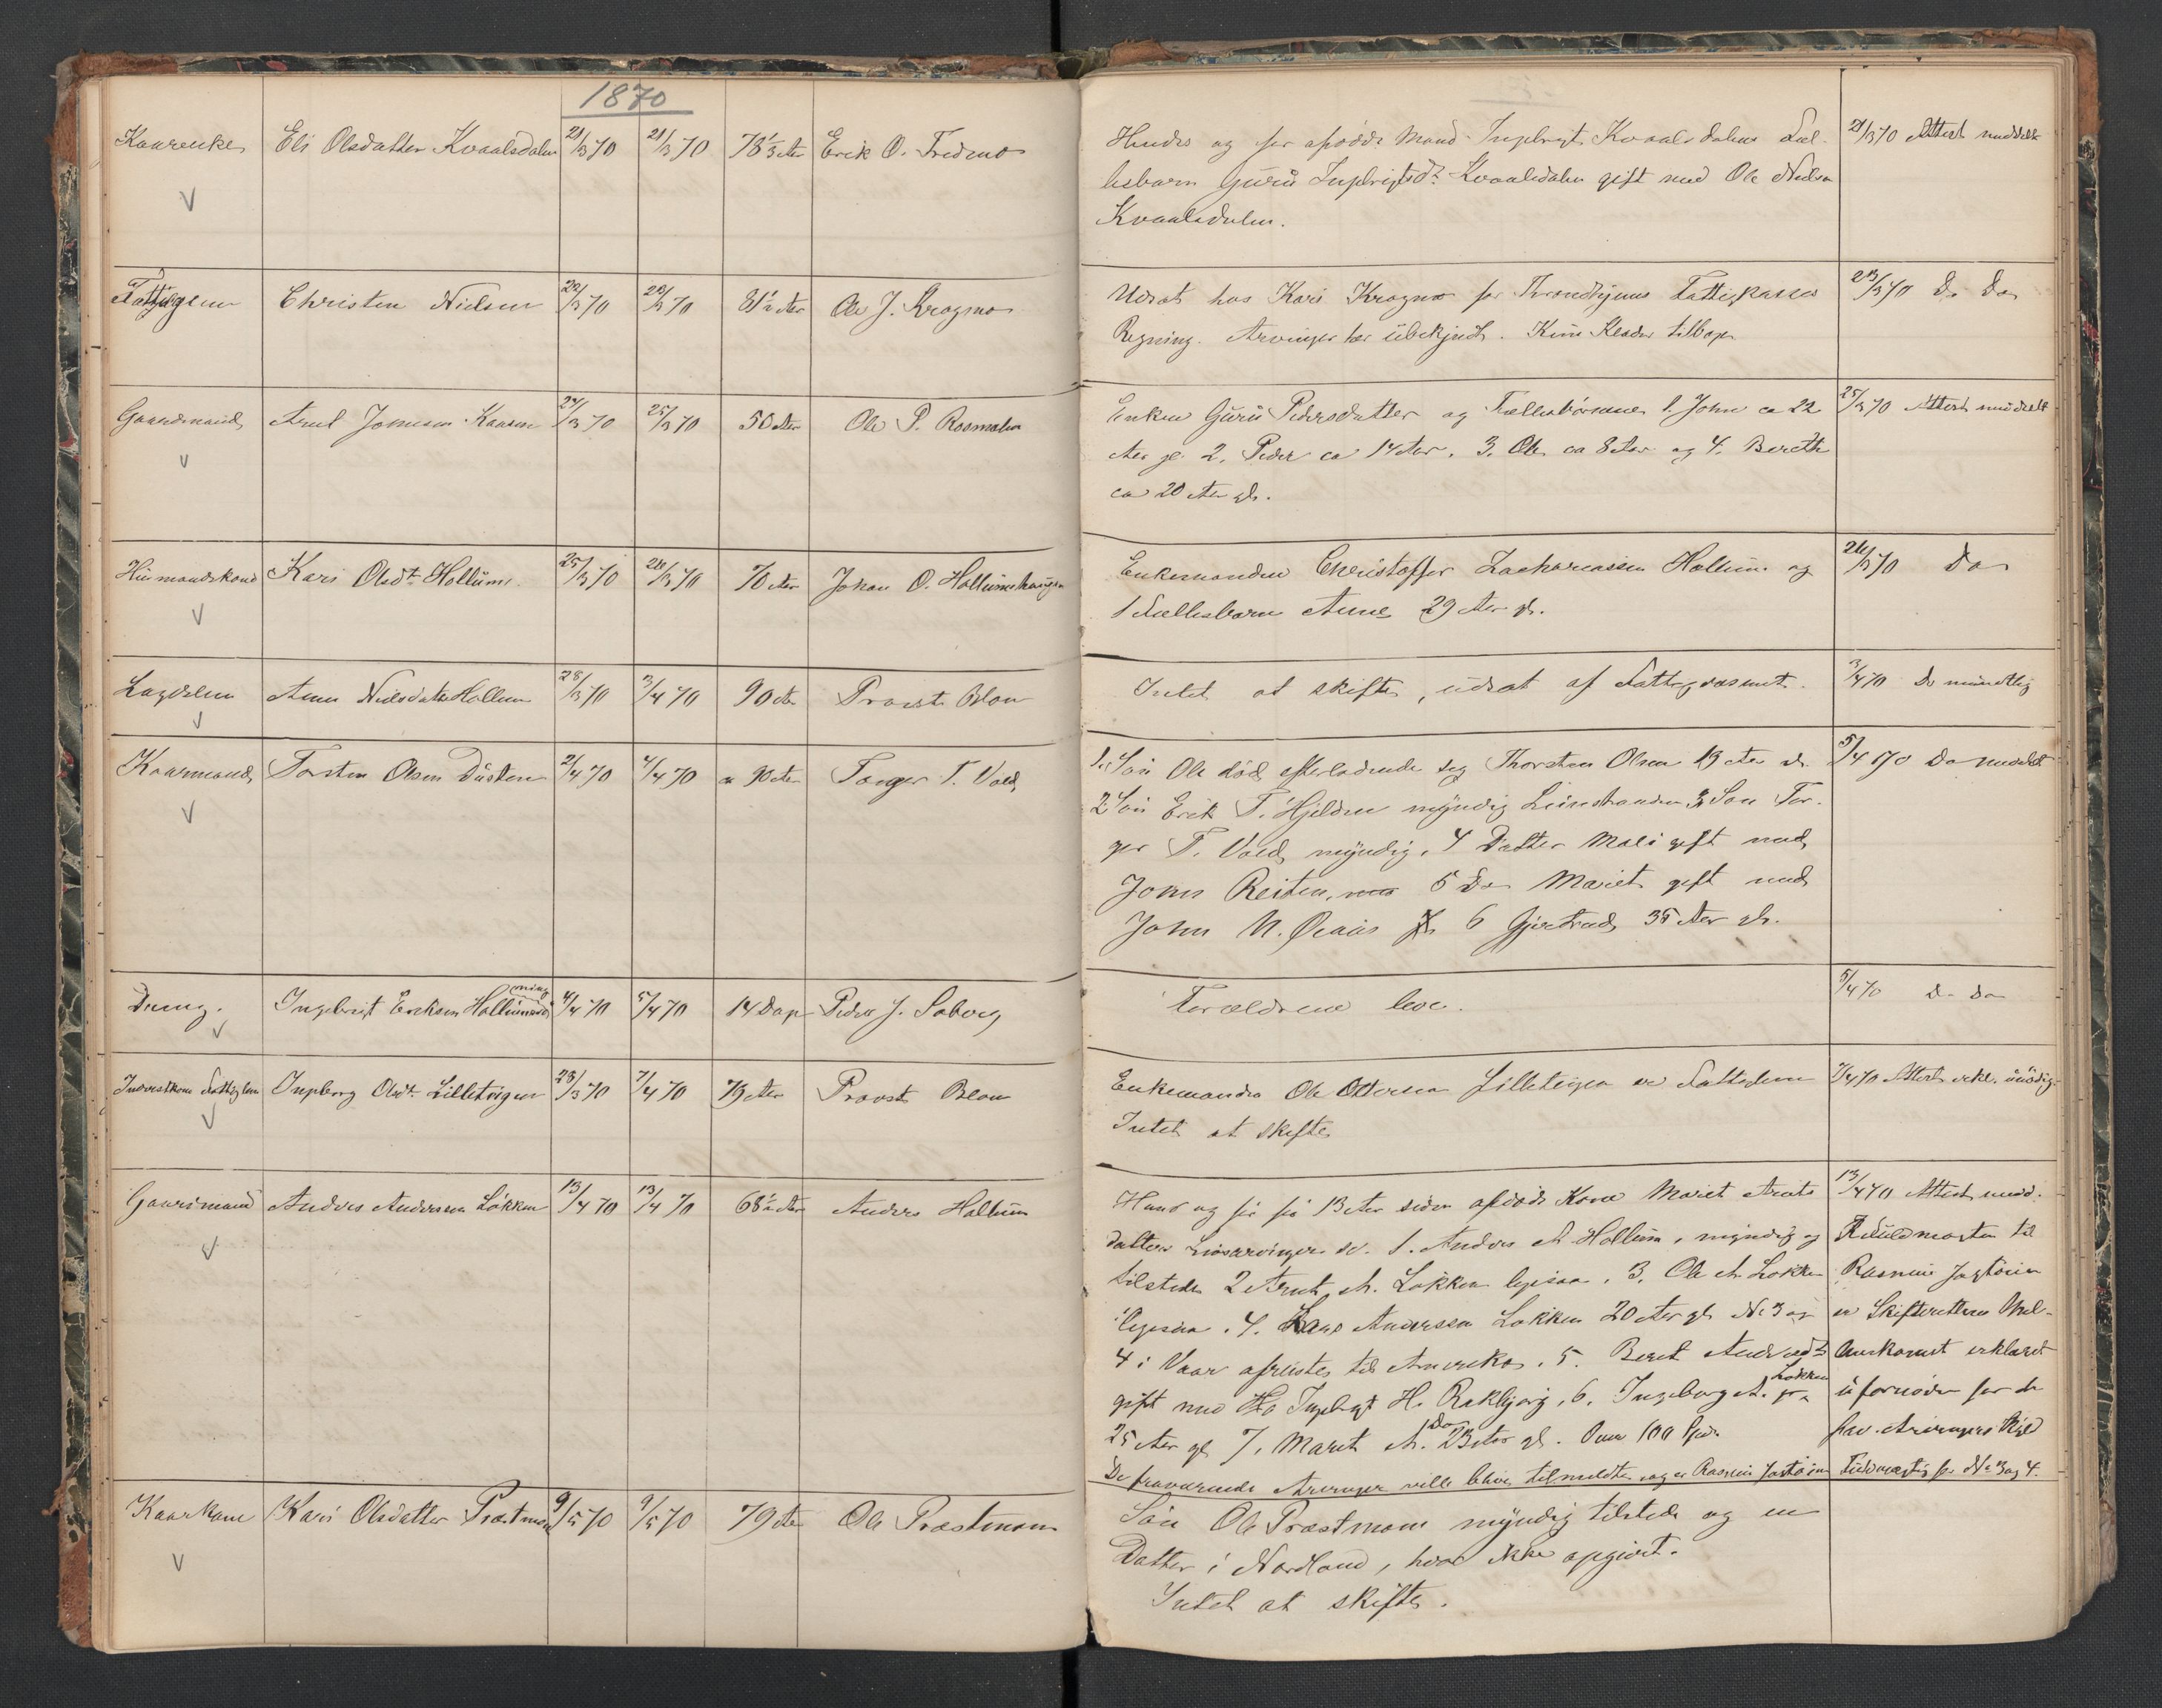 1870
Kaarenke Eli Olsdatter Kvaalsdalen 21/3 70 21/3 70 78 1/3 Aar Erik O. Fredmo
Hendes og før afdøde Mand Ingebrigt Kvaalsdalens Fæl-
lesbarn Guru Ingebrigtsdt. Kvaalsdalen gift med Ole Nielsen
Kvaalsdalen.
21/3 70 Attest meddelt
Fattiglem Christen Nielsen 22/3 70 23/3 70 81 1/2 Aar Ole J. Kragmo
Udsat hos Kari Kragmo for Throndhjems Fattigkasses
Regning. Arvinger her übekjendt. Kun Klæder tilbage
23/3 70 Do Do
Gaardmand Arnt Jonssen Kaasen 24/3 70 25/3 70 50 Aar Ole P. Rosmalen
Enken Guru Pedersdatter og Fællesbørnene 1. John ca 22
Aar gl. 2. Peder ca 14 Aar. 3. Ole ca 8 Aar og 4. Bereth
ca 20 Aar gl.
25/3 70 Attest meddelt
Huusmandskone Kari Olsdt. Hollum 25/3 70 26/3 70 70 Aar Johan O. Hollumshaugen
Enkemanden Christoffer Zachariassen Hollum og
1 Fællesbarn Anne 29 Aar gl.
26/3 70 Do
Lægdslem Anne Nielsdatter Hollum 28/3 70 3/4 70 90 Aar Provst Blom
Intet at skifte, udsat af Fattigvæsenet.
3/4 70 Do mundtlig
Kaarmand Torsten Olsen Dusten 2/4 70 4/4 70 ca 90 Aar Torger T. Vold
1. Søn Ole død efterladende sig Thorsten Olsen 13 Aar gl.
2 Søn Erik T. Hjelden myndig Leinstranden 3 Søn Tor-
ger T. Vold myndig. 4 Datter Mali gift med
Jonn Reiten, 5 Do Mariet gift med
John N. Øiaas 6 Gjertrud 35 Aar gl.
5/4 70 Do meddelt
Dreng. Ingebrigt Eriksen Hollum 4/4 70 5/4 70 14 Dage Peder J. Soberg
Forældrene leve.
5/4 70 Do Do
Inderstkone Fattiglem Ingeborg Olsdt. Lilletrigen 28/3 70 7/4 70 79 Aar Provst Blom
Enkemanden Ole Ottersen Lilletrigen er Fattiglem
Intet at skifte
7/4 70 Attest erkl. unødig.
Gaardmand Anders Andersen Løkken 13/4 70 13/4 70 68 1/2 Aar Anders Hollum
Hans og for 13 Aar siden afdøde Kone Mariet Arnts
datters Livsarvinger er 1. Anders A. Hollum, myndig og
tilstede 2 Arnt A. Løkken ligesaa. 3. Ole A. Løkken
ligesaa. 4. Lars Andersen Løkken 20 Aar gl. No 3 og
4 i Vaar afreiste til Amerika. 5. Beret Andersdt.
gift med Ingebrigt H. Rakbjørg, 6. Ingeborg A. Løkken
25 Aar gl. 7. Marit A. Do 23 Aar gl. Over 100 Spd.
De fraværende Arvinger ville blive tilmeldte og er Rasmus Jagtøien Fuldmægtig for No 3 og 4.
13/4 70 Attest medd.
Fuldmagten til
Rasmus Jagtøien
er Skifterettens Mel-
erklæret
ufornøden for de
frav. Arvingers
Kaarkone Kari Olsdatter Præstmoen 9/5 70 9/5 70 79 Aar Ole Præstmoen
Søn Ole Præstmoen myndig tilstede og en
Datter i Nordland, hvor ikke opgivet.
Intet at skifte.